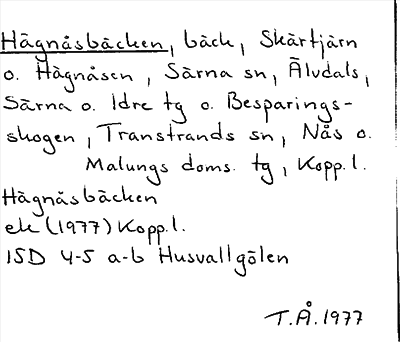 Hägnåsbäcken, bäck, Skärtjärn
o. Hägnåsen, Särna sn, Älvdals,
Särna o. Idre tg o. Besparings-
skogen, Transtrands sn, Nås o.
Malungs doms. tg, Kopp. l.
Hägnåsbäcken
ek (1977) Kopp. l.
ISD 4-5 a-b Husvallgölen
T.Å. 1977